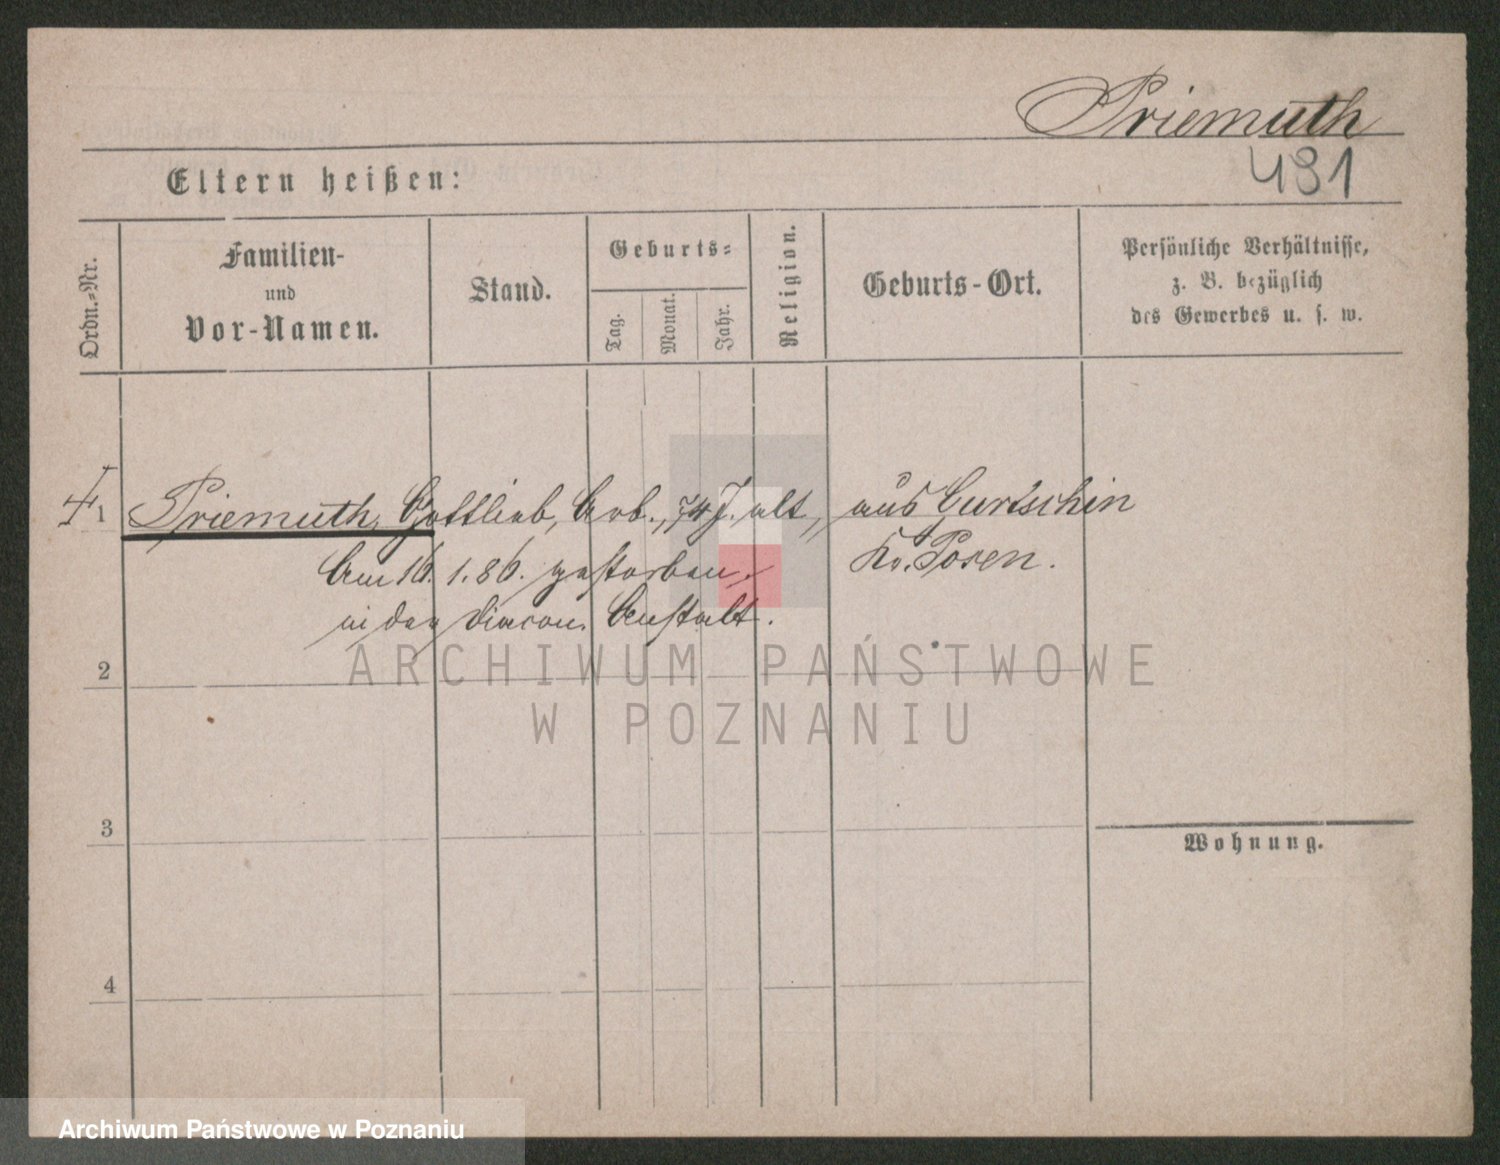 Priemuth
491
Eltern heißen:
Ordn.-Nr.
Familien-
und
Vor-Namen.
Stand.
Geburts-
Tag.
Monat.
Jahr.
Religion.
Geburts-Ort.
Persönliche Verhältnisse,
z. B. bezüglich
des Gewerbes u. s. w.
1 Priemuth, Gottlieb, Arb., 74 J. alt, aus Gurtschin
Kr. Posen.
Am 16. 1. 86. gestorben,
in der Diacon. Anstalt.
2
ARCHIWUM PAŃSTWOWE
W POZNANIU
3
Wohnung.
4
Archiwum Państwowe w Poznaniu